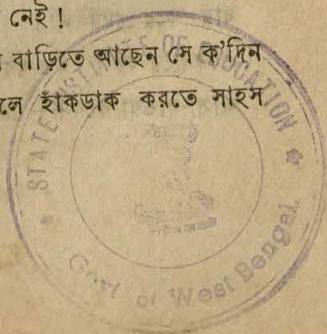 নেই !
বাড়িতে আছেন সে ক'দিন
লে হাঁকডাক করতে সাহস
STATE INSTITUTE OF EDUCATION
Govt of West Bengal